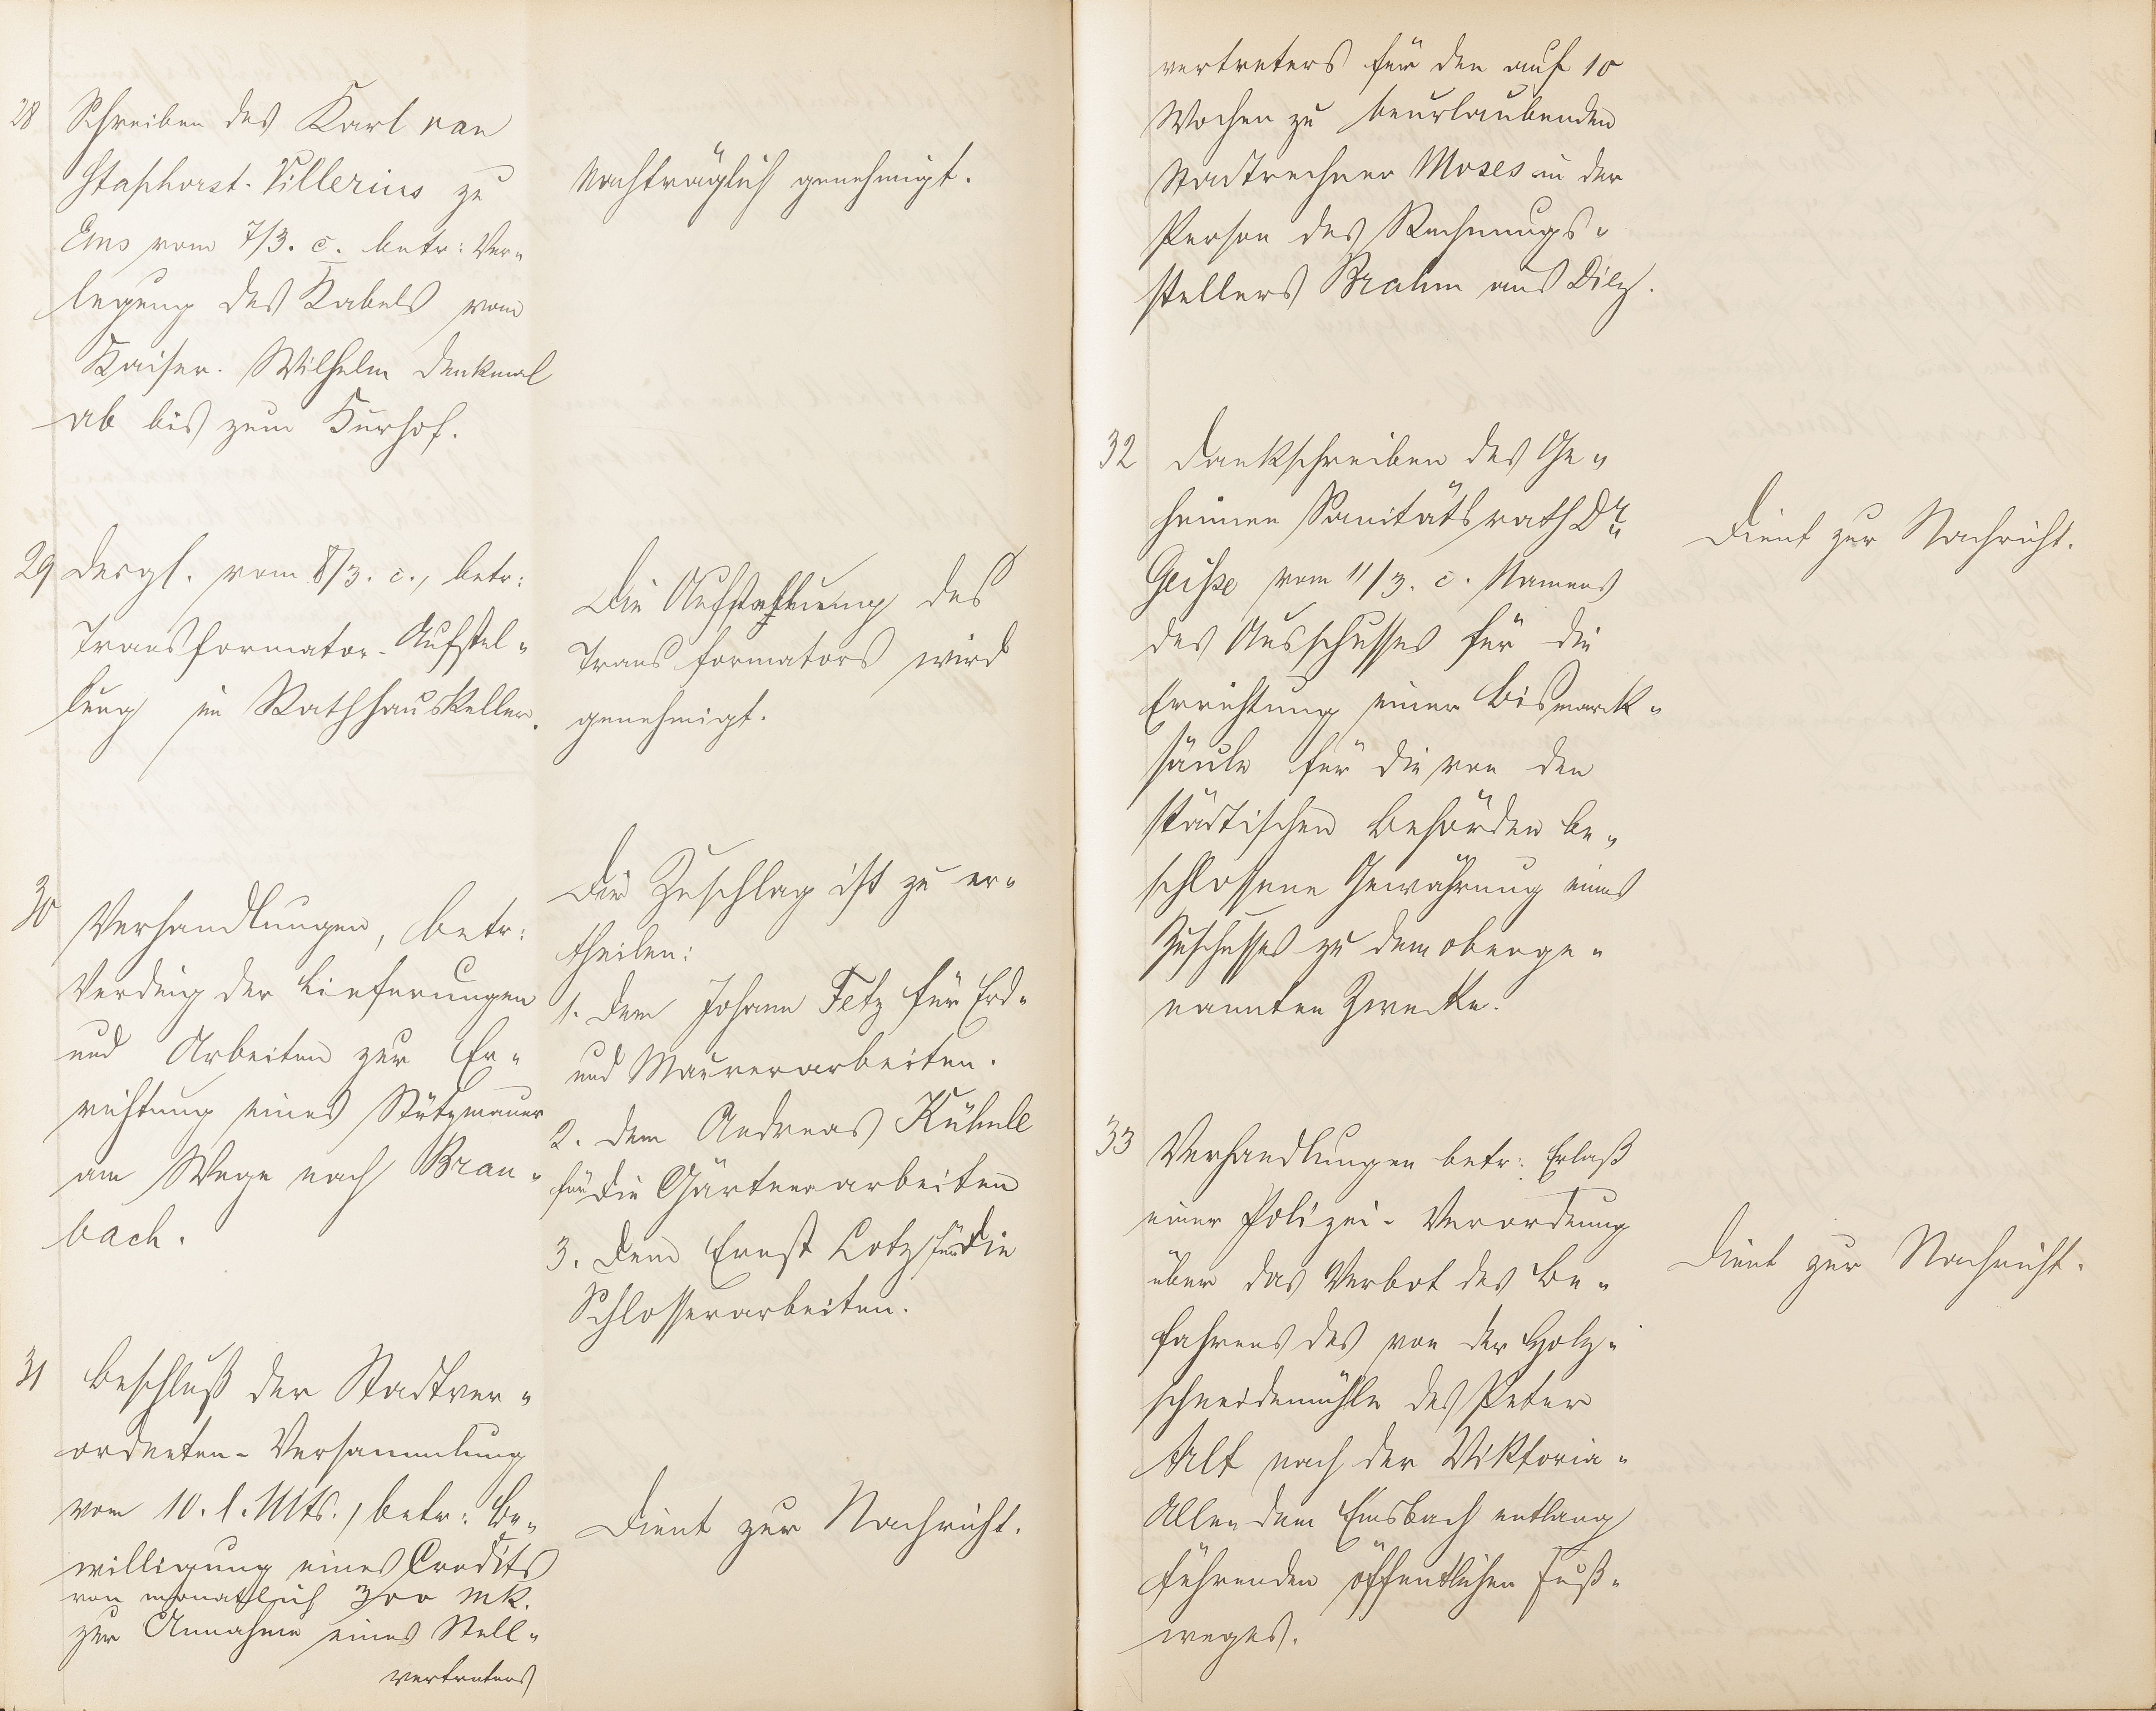 28 Schreiben des Karl van
Staphorst-Villerius zu
Ems vom 7/3. c. betr: Ver-
legung des Kabels vom
Kaiser-Wilhelm Denkmal
ab bis zum Kurhof.
Nachträglich genehmigt.
29 Desgl. vom 8/3. c., betr:
Transformator-Aufstel-
lung im Rathhauskeller.
Die Aufstellung des
Transformators wird
genehmigt.
30 Verhandlungen, betr:
Verding der Lieferungen
und Arbeiten zur Er-
richtung eines Stützmauer
am Wege nach Brau-
bach.
Der Zuschlag ist zu er-
theilen:
1. dem Johann Fetz für Erd-
und Maurerarbeiten.
2. dem Andreas Kühnle
für die Gärtnerarbeiten
3. dem Ernst Lotz für die
Schlosserarbeiten.
31 Beschluß der Stadtver-
ordneten-Versammlung
vom 10. l. Mts., betr: Be-
willigung eines Credits
von monatlich 300 Mk.
zur Annahme eines Stell-
vertreters
Dient zur Nachricht.
vertreters für den auf 10
Wochen zu beurlaubenden
Stadtrechner Moses in der
Person des Rechnungs-
stellers Brahm aus Diez.
32 Dankschreiben des Ge-
heimen Sanitätsrath Dr.
Geisse vom 11/3. c. Namens
des Ausschusses für die
Errichtung einer Bismarck-
säule für die von den
städtischen Behörden be-
schlossene Gewährung eines
Zuschusses zu dem obenge-
nannten Zwecke.
Dient zur Nachricht.
33 Verhandlungen betr: Erlaß
einer Polizei-Verordnung
über das Verbot des Be-
fahrens des von der Holz-
schneidemühle des Peter
Alt nach der Viktoria-
Allee dem Emsbach entlang
führenden öffentlichen Fuß-
weges.
Dient zur Nachricht.